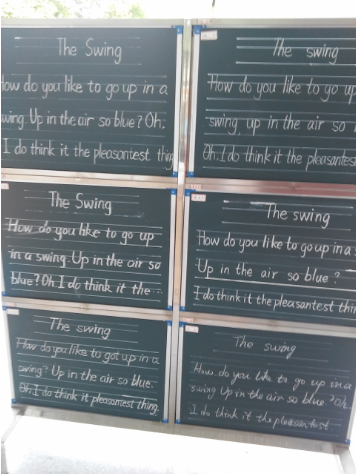 The Swing
How do you like to go up in a
swing Up in the air so blue? Oh,
I do think it the pleasantest thing
The swing
How do you like to go up
swing, up in the air so
Oh. I do think it the pleasantes
The Swing
How do you like to go up
in a swing Up in the air so
blue? Oh I do think it the ...
The swing
How do you like to go up in a
Up in the air so blue?
I do think it the pleasantest thin
The swing
How do you like to got up in a
swing? Up in the air so blue.
Oh. I do think it pleasantest thing.
The swing
How do you like to go up in a
swing Up in the air so blue? Oh.
I do think it the pleasantest